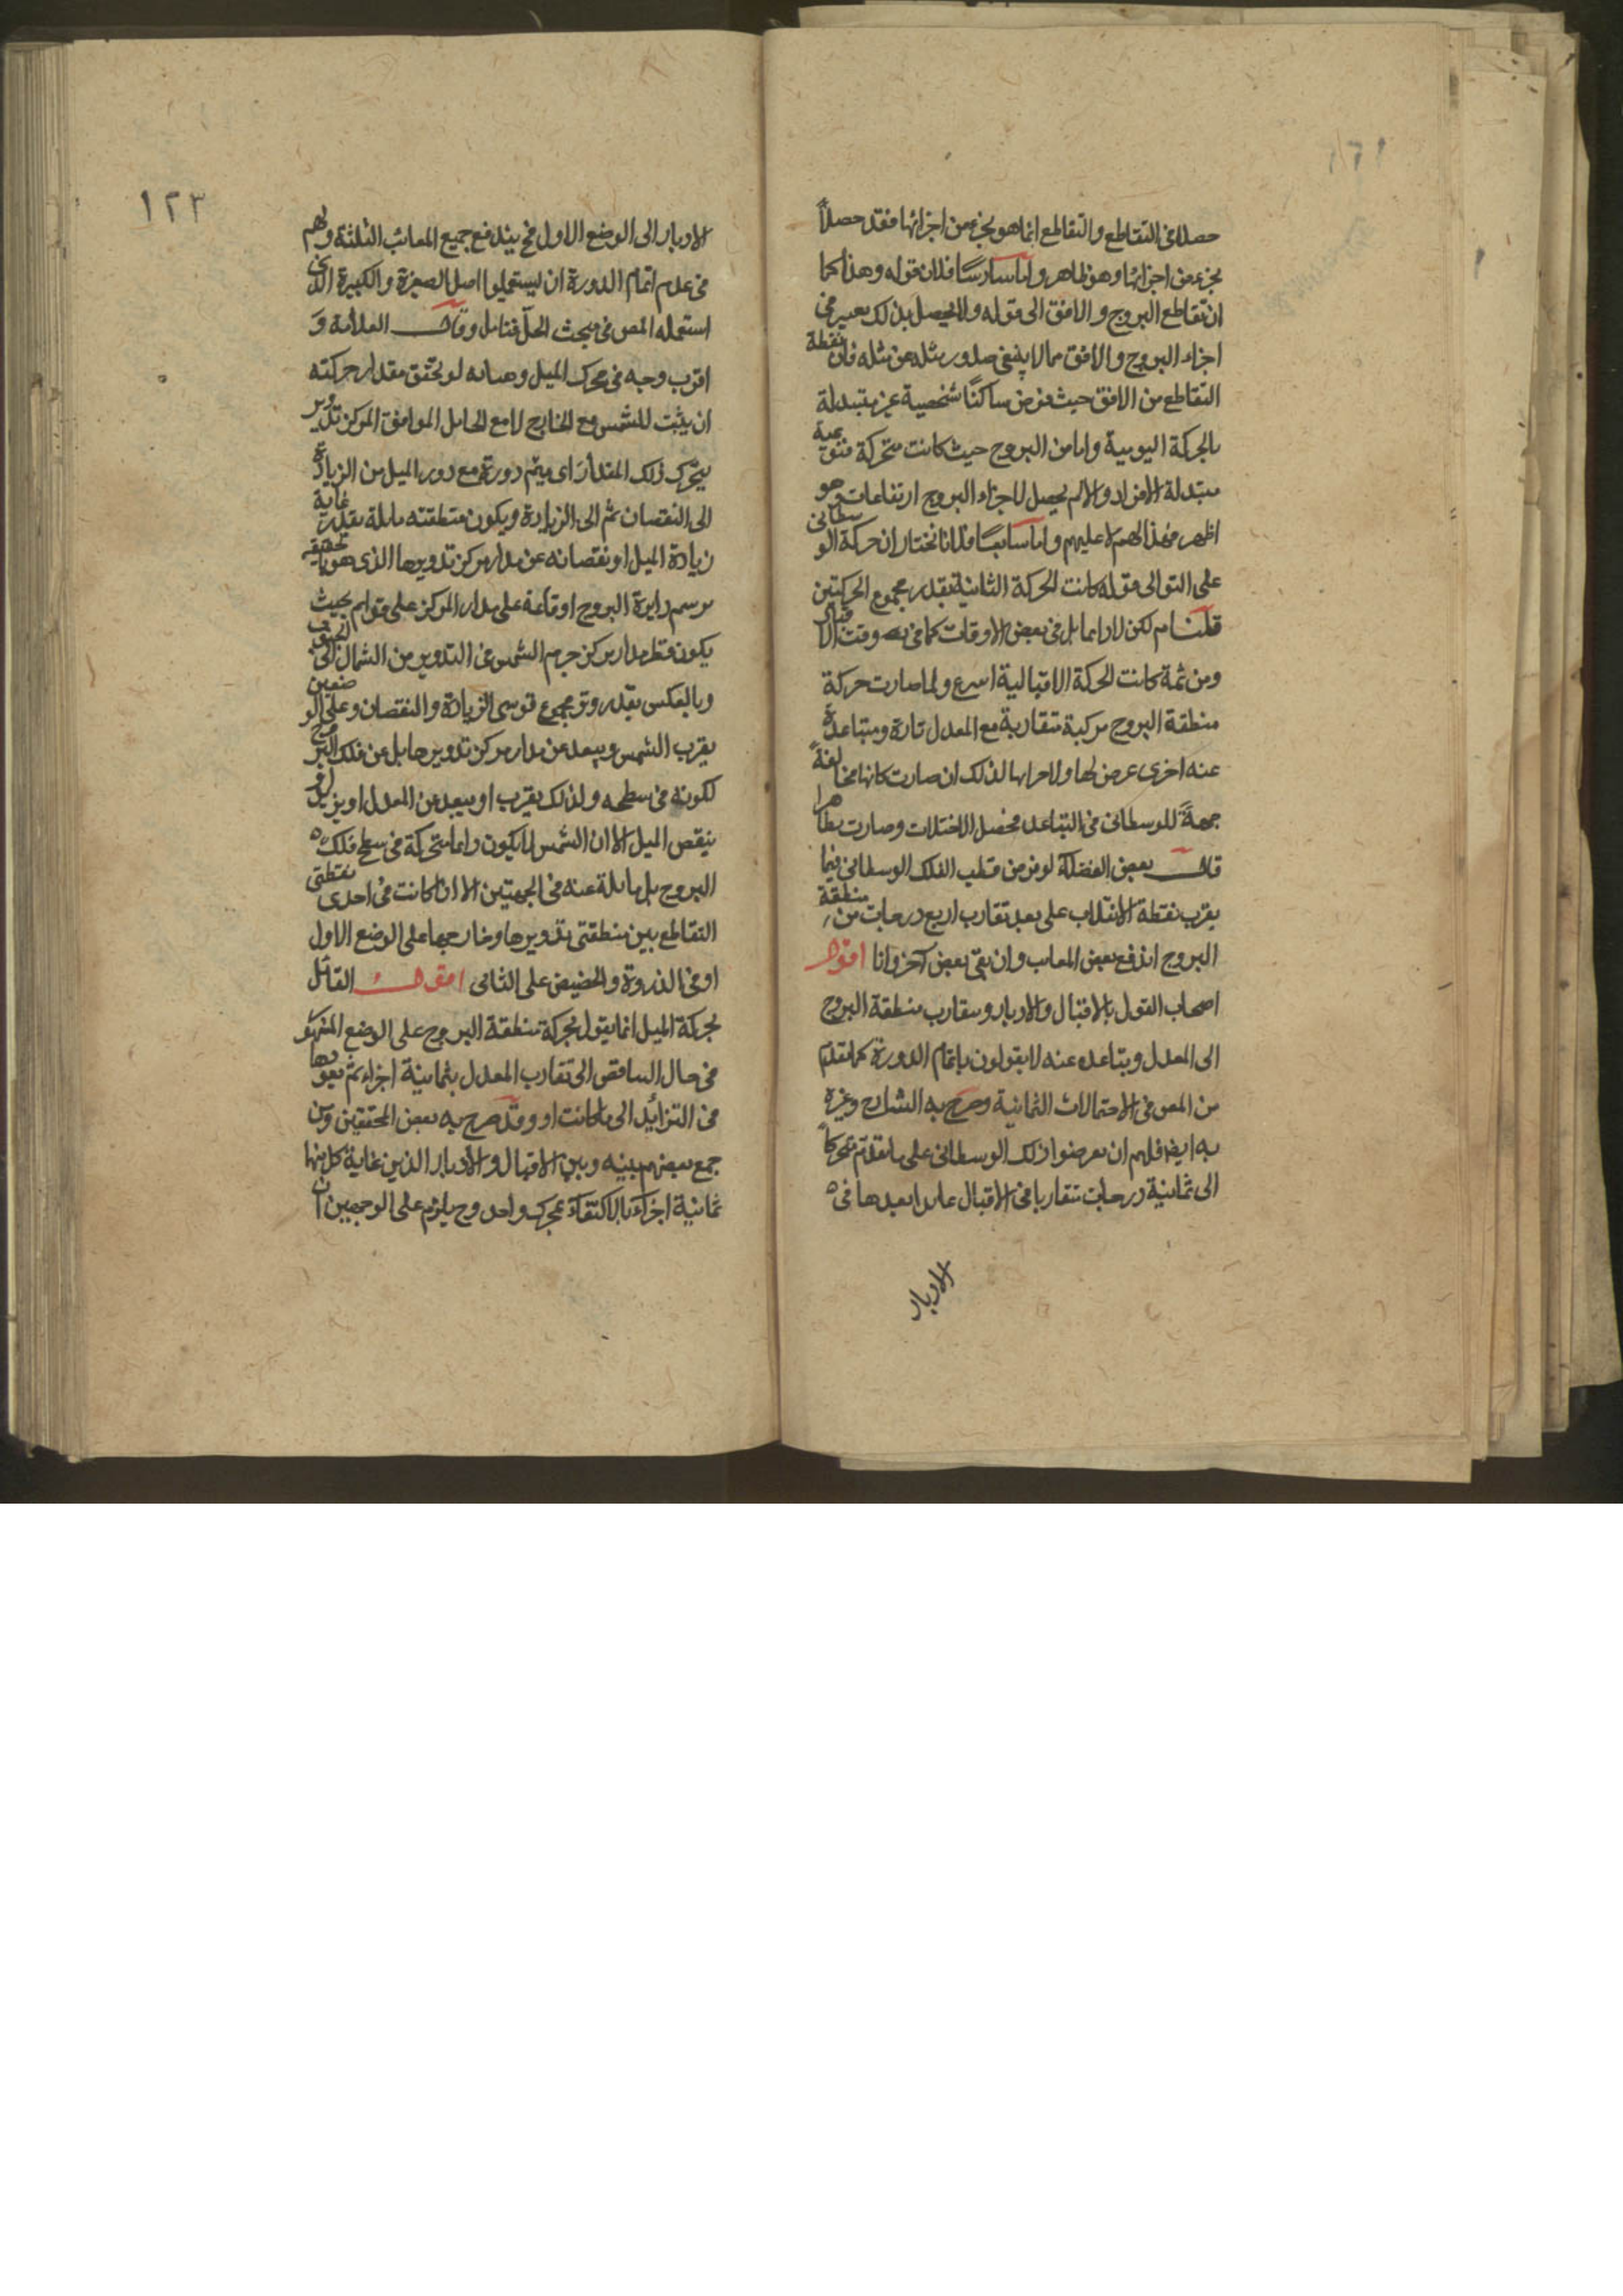 حصلا فى التقاطع والتقاطع انما هو بجزء من اجزائها فقد حصلا
بجزء من اجزائها وهو ظاهر واما سادسا فلان قوله وهذا كما
ان تقاطع البروج والافق الى قوله ولا يحصل بذلك تعيير فى
اجزاء البروج والافق مما لا ينبغى صدور مثله عن مثله فان نقطة
التقاطع من الافق حيث فرض ساكنا شخصية غير متبدلة
بالحركة اليومية واما من البروج حيث كانت متحركة فنوعية
متبدلة الافراد والا لم يحصل لاجزاء البروج ارتفاعات وهو
اظهر فهذا لهم لا عليهم واما سابعا فلانا نختار ان حركة الوسطانى
على التوالى قوله كانت الحركة الثانية بقدر مجموع الحركتين
قلنا م لكن لا دايما بل فى بعض الاوقات كما فى وقت الاقبال
ومن ثمة كانت الحركة الاقبالية اسرع ولما صارت حركة
منطقة البروج مركبة متقاربة مع المعدل تارة ومتباعدة
عنه اخرى عرض لها ولاجزائها لذلك ان صارت كانها مخالفة
جهة للوسطانى فى التباعد فحصل الاختلاف وصارت بطا
قال بعض الفضلاء لو فرض قطب الفلك الوسطانى فيما
يقرب نقطة الانقلاب على بعد تقارب اربع درجات من منطقة
البروج اندفع بعض المعايب وان بقى بعض آخر وانا اقول
اصحاب القول بالاقبال والادبار وتقارب منطقة البروج
الى المعدل وتباعده عنه لا يقولون باتمام الدورة كما تقدم
من المص فى الاحتمالات الثمانية وصرح به الشارح وغيره
به ايضا فلهم ان يفرضوا ذلك الوسطانى على ما تقدم متحركا
الى ثمانية درجات متقاربا فى الاقبال عائدا بعدها فى
الادبار
١٢٣
الادبار الى الوضع الاول فح يندفع جميع المعائب الثلثة ولهم
فى عدم اتمام الدورة ان يستعملوا اصل الصغيرة والكبيرة الذى
استعمله المص فى مبحث الحل فتامل وقال العلامة و
اقرب وجه فى محرك الميل لو تحقق مقدار حركته
ان يثبت للشمس مع الخارج لا مع الحامل الموافق المركز تدوير
يتحرك ذلك المقدار اى يتم دورة مع دور الميل من الزيادة
الى النقصان ثم الى الزيادة ويكون منطقته مايلة بقدر غاية
زيادة الميل او نقصانه عن مدار مركز تدويرها الذى هو بالحقيقة
يرسم دايرة البروج او قائمة على مدار المركز على قوائم بحيث
يكون قطر مدار مركز جرم الشمس فى التدوير من الشمال الى الجنوب
وبالعكس بقدر وتر مجموع قوسى الزيادة والنقصان وعلى الوضعين
يقرب الشمس ويبعد عن مدار مركز تدوير حامل عن فلك البروج
لكونه فى سطحه ولذلك يقرب او يبعد عن المعدل او يزيد او
ينقص الميل الا ان الشمس لا يكون دايما متحركة فى سطح فلك
البروج بل مايلة عنه فى الجهتين الا ان كانت فى احدى نقطتى
التقاطع بين منطقتى تدويرها وخارجها على الوضع الاول
او فى الذروة والحضيض على الثانى اقول القائل
بحركة الميل انما يقول بحركة منطقة البروج على الوضع المشهور
فى حال التناقص الى تقارب المعدل بثمانية اجزاء ثم بعودها
فى التزايد الى ما كانت او وقد صرح به بعض المحققين ومن
جمع بعضهم بينه وبين الاقبال والادبار الذين غاية كل منها
ثمانية اجزاء بالاكتفاء بمحرك واحد وح يلزم على الوجهين ان